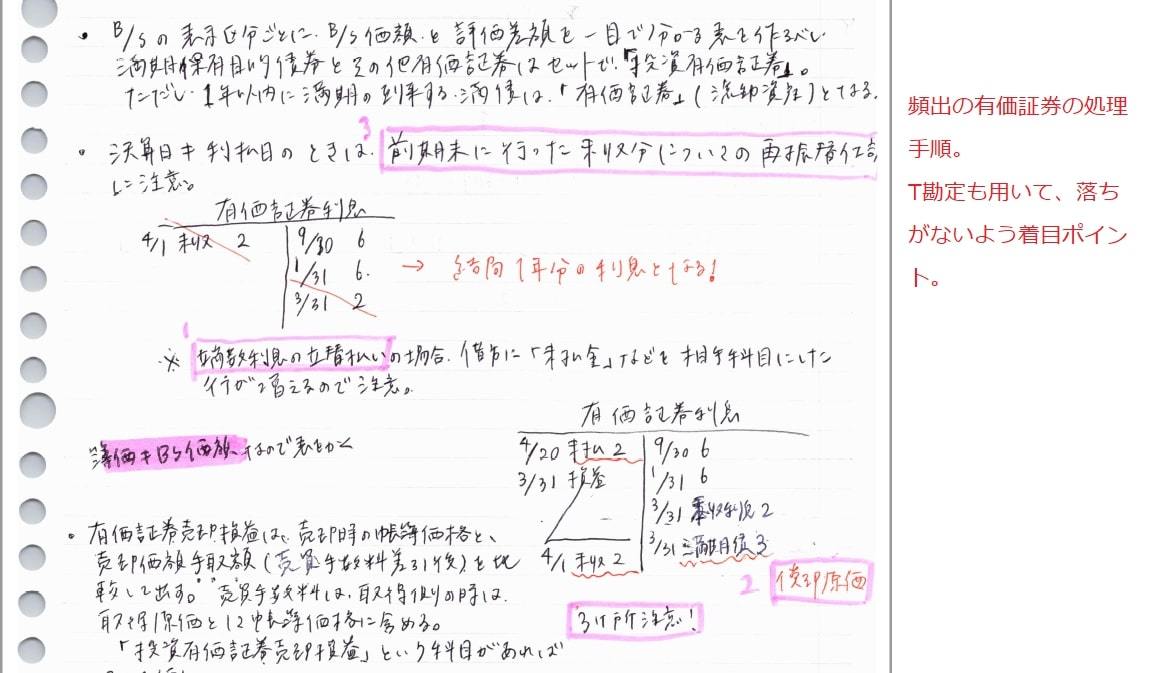 ・B/Sの表示区分ごとに、B/S価額と評価差額を一目で分かる表を作るべし
満期保有目的債券とその他有価証券はセットで、「投資有価証券」。
ただし、1年以内に満期の到来する満債は、「有価証券」(流動資産)となる。
3
・決算日≠利払日のときは、前期末に行った未収分についての再振替仕訳
に注意。
有価証券利息
4/1 未収 2
9/30 6
1/31 6.
3/31 2
→ 結局1年分の利息となる!
1
※ 端数利息の立替払いの場合、借方に「未払金」などを相手科目にした
行が増えるので注意。
簿価≠BS価額、なので表をかく
有価証券利息
4/20 未払 2
3/31 損益
4/1 未収 2
9/30 6
1/31 6
3/31 未収利息 2
3/31 満期目債 3
2 償却原価
3ヶ所注意!
・有価証券売却損益は、売却時の帳簿価格と、
売却価額手取額(売買手数料差引後)を比
較して出す。売買手数料は、取得側の時は、
取得原価として帳簿価格に含める。
「投資有価証券売却損益」という科目があれば
頻出の有価証券の処理
手順。
T勘定も用いて、落ち
がないよう着目ポイン
ト。